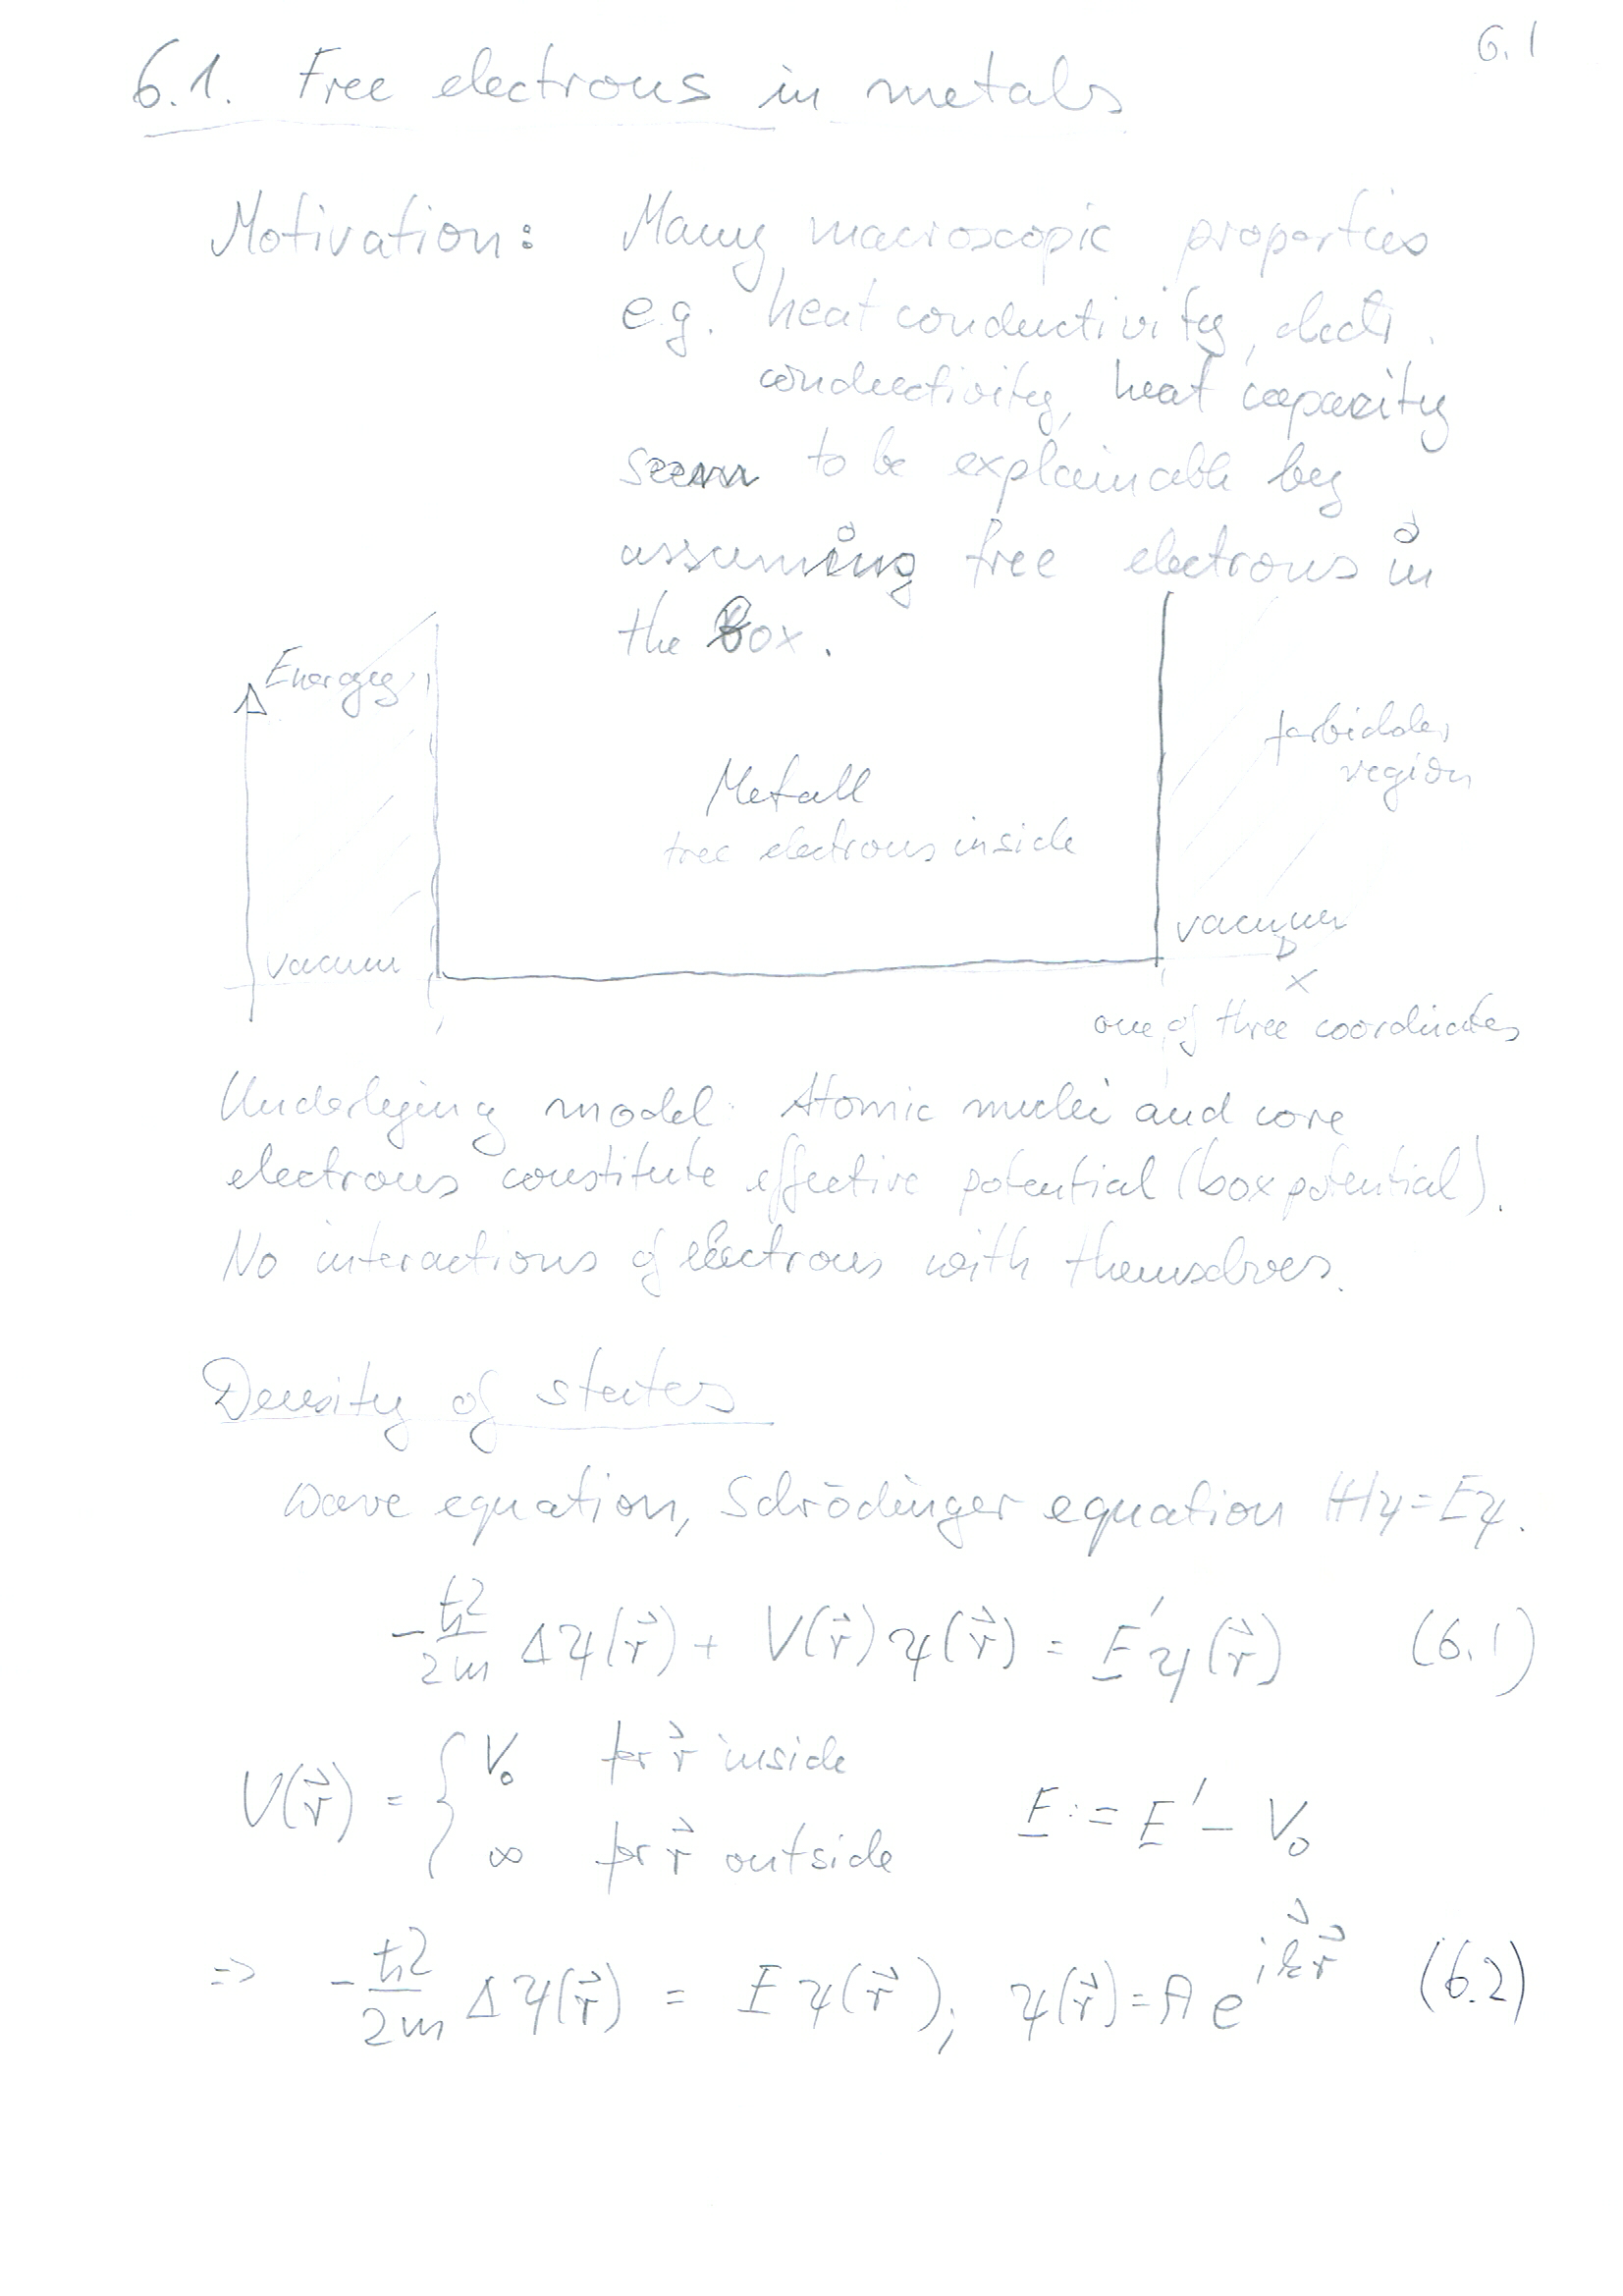 6.1
6.1. Free electrons in metals
Motivation: Many macroscopic properties
e.g. heat conductivity, electr.
conductivity, heat capacity
seem to be explainable by
assuming free electrons in
the Box.
Energy
forbidden
region
Metall
free electrons inside
vacuum
vacuum
x
one of three coordinates
Underlying model: Atomic nuclei and core
electrons constitute effective potential (box potential).
No interactions of electrons with themselves.
Density of states
Wave equation, Schrödinger equation Hψ=Eψ.
-ħ²/2m Δψ(r⃗) + V(r⃗)ψ(r⃗) = E'ψ(r⃗) (6.1)
V(r⃗) = { V₀ for r⃗ inside
∞ for r⃗ outside
E := E' - V₀
=> -ħ²/2m Δψ(r⃗) = Eψ(r⃗); ψ(r⃗) = A e^{ik⃗r⃗} (6.2)